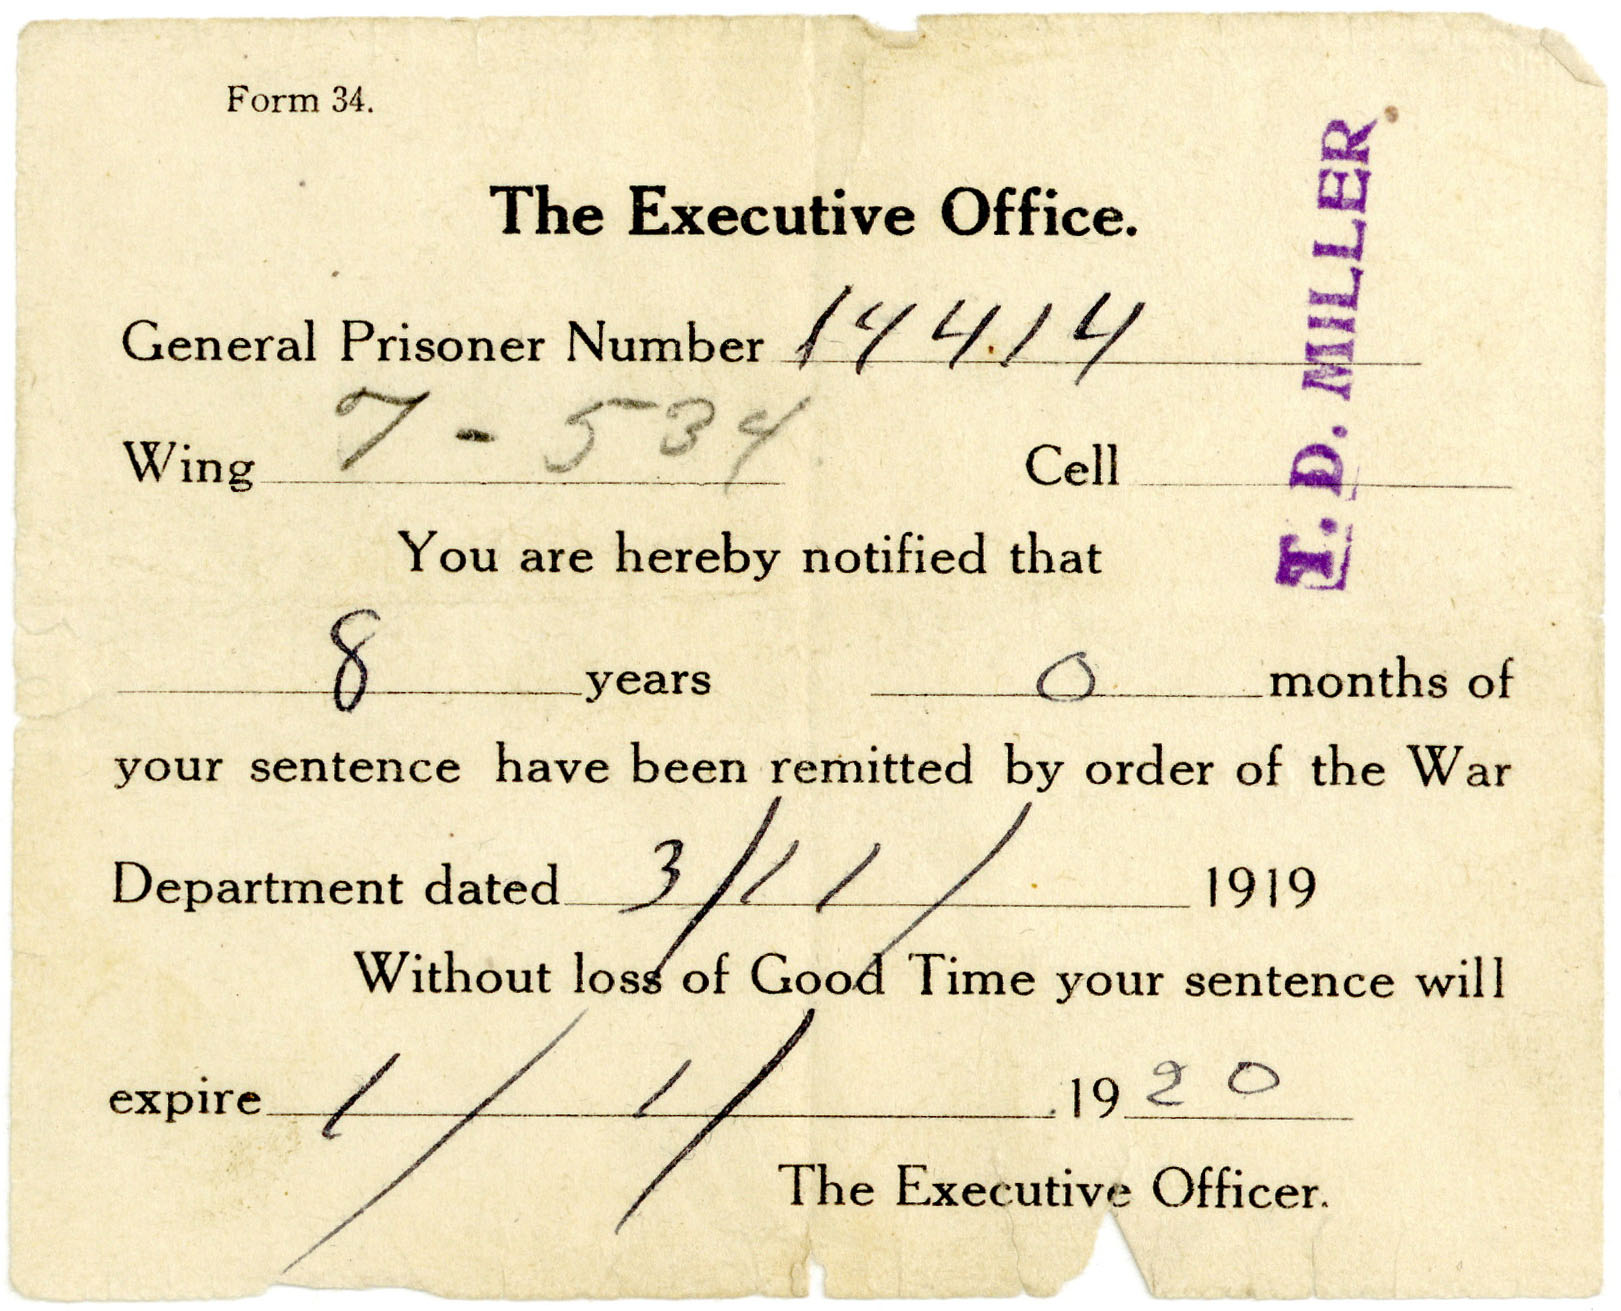 Form 34.
The Executive Office.
General Prisoner Number 14414
Wing 7 - 534 Cell
You are hereby notified that
8 years 0 months of
your sentence have been remitted by order of the War
Department dated 3/11/ 1919
Without loss of Good Time your sentence will
expire 1/1/ 1920
The Executive Officer.
I. D. MILLER